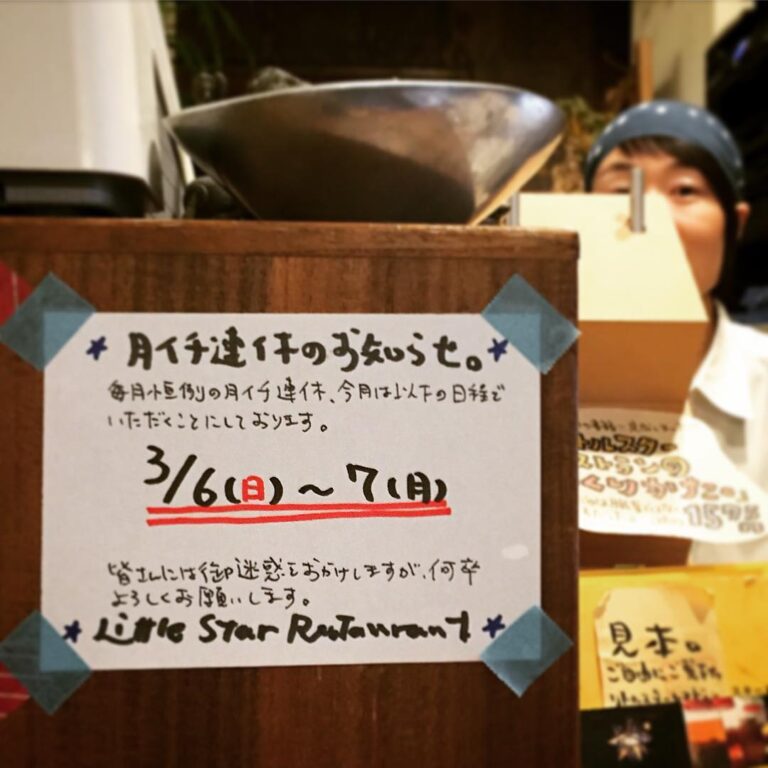 月イチ連休のお知らせ。
毎月恒例の月イチ連休、今月は以下の日程で
いただくことにしております。
3/6(日)〜7(月)
皆さんには御迷惑をおかけしますが、何卒
よろしくお願いします。
Little Star Restaurant
見本。